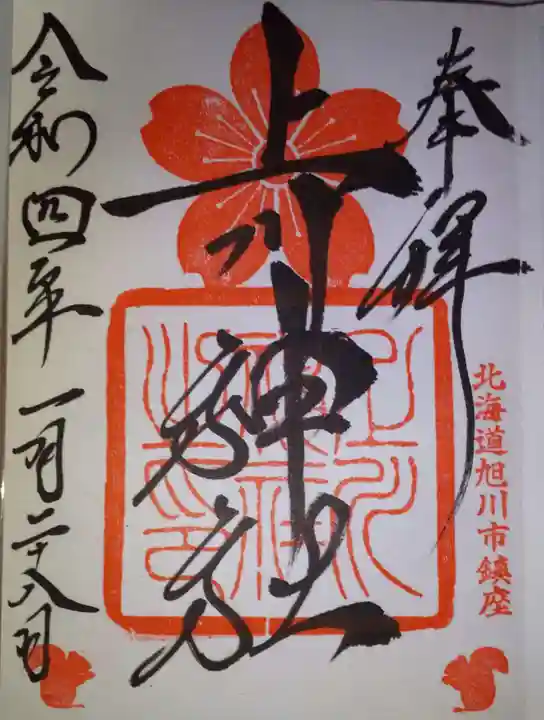 奉拝
北海道旭川市鎮座
上川神社
令和四年一月二十八日